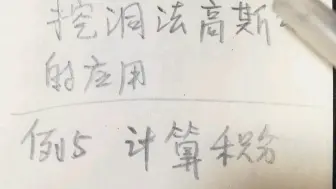 挖洞法高斯
的应用
例5 计算积分